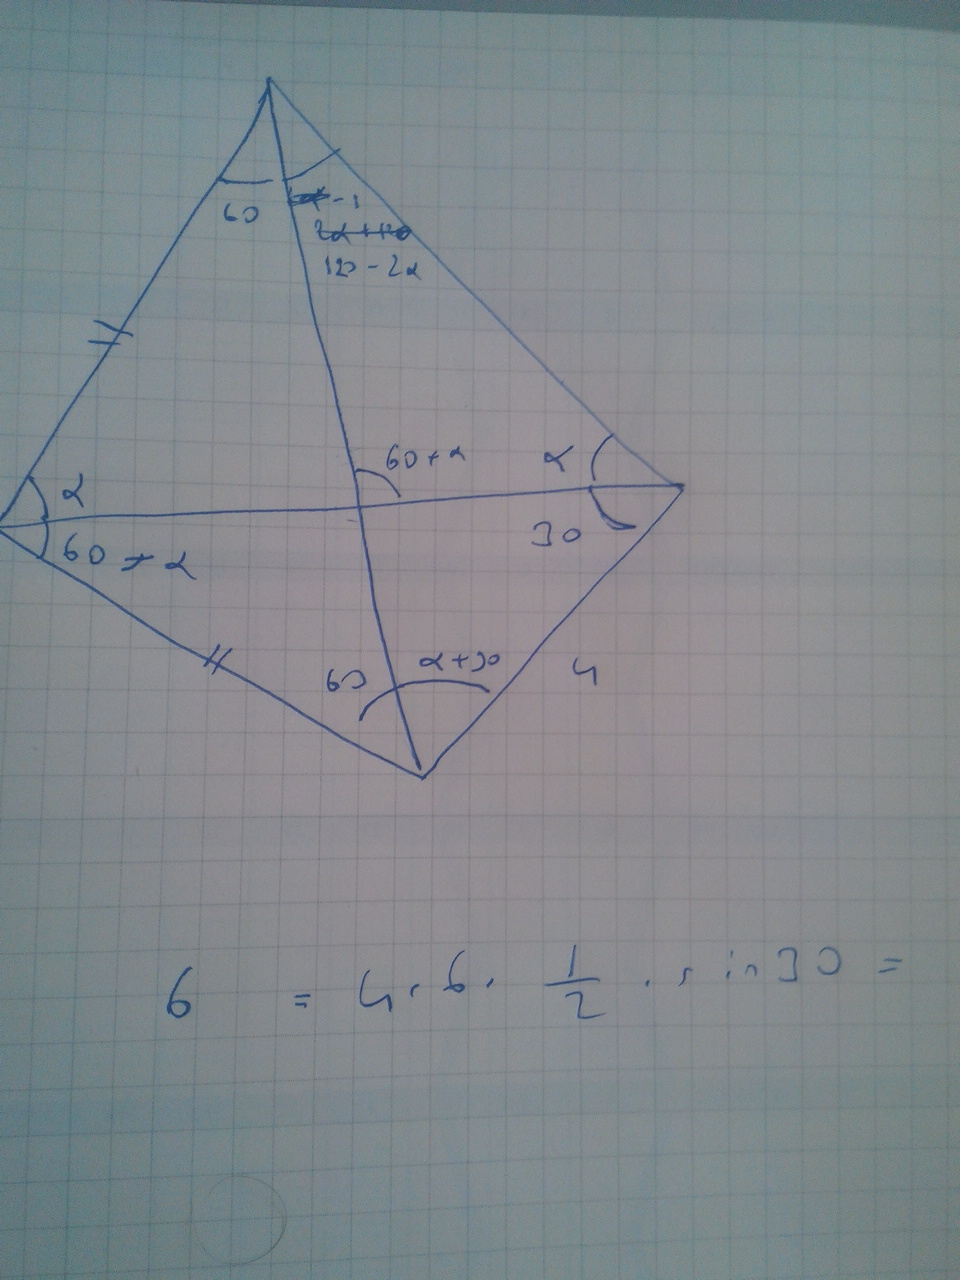 60
2α+120
120-2α
60+α
α
α
30
60-α
60
α+30
4
6 = 4·6· 1/2 · sin30 =